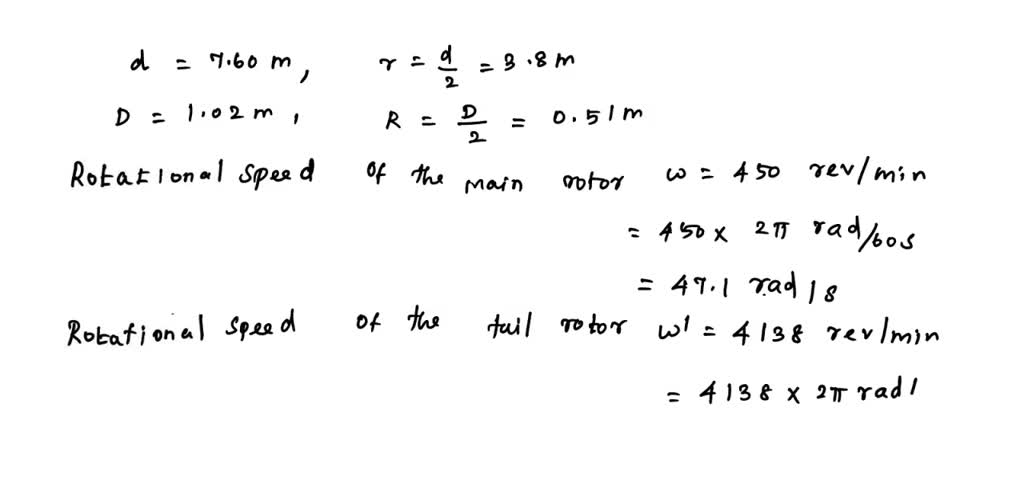 d = 7.60 m, r = d/2 = 3.8 m
D = 1.02 m, R = D/2 = 0.51 m
Rotational speed of the main rotor ω = 450 rev/min
= 450 × 2π rad/60s
= 47.1 rad/s
Rotational speed of the tail rotor ω' = 4138 rev/min
= 4138 × 2π rad/